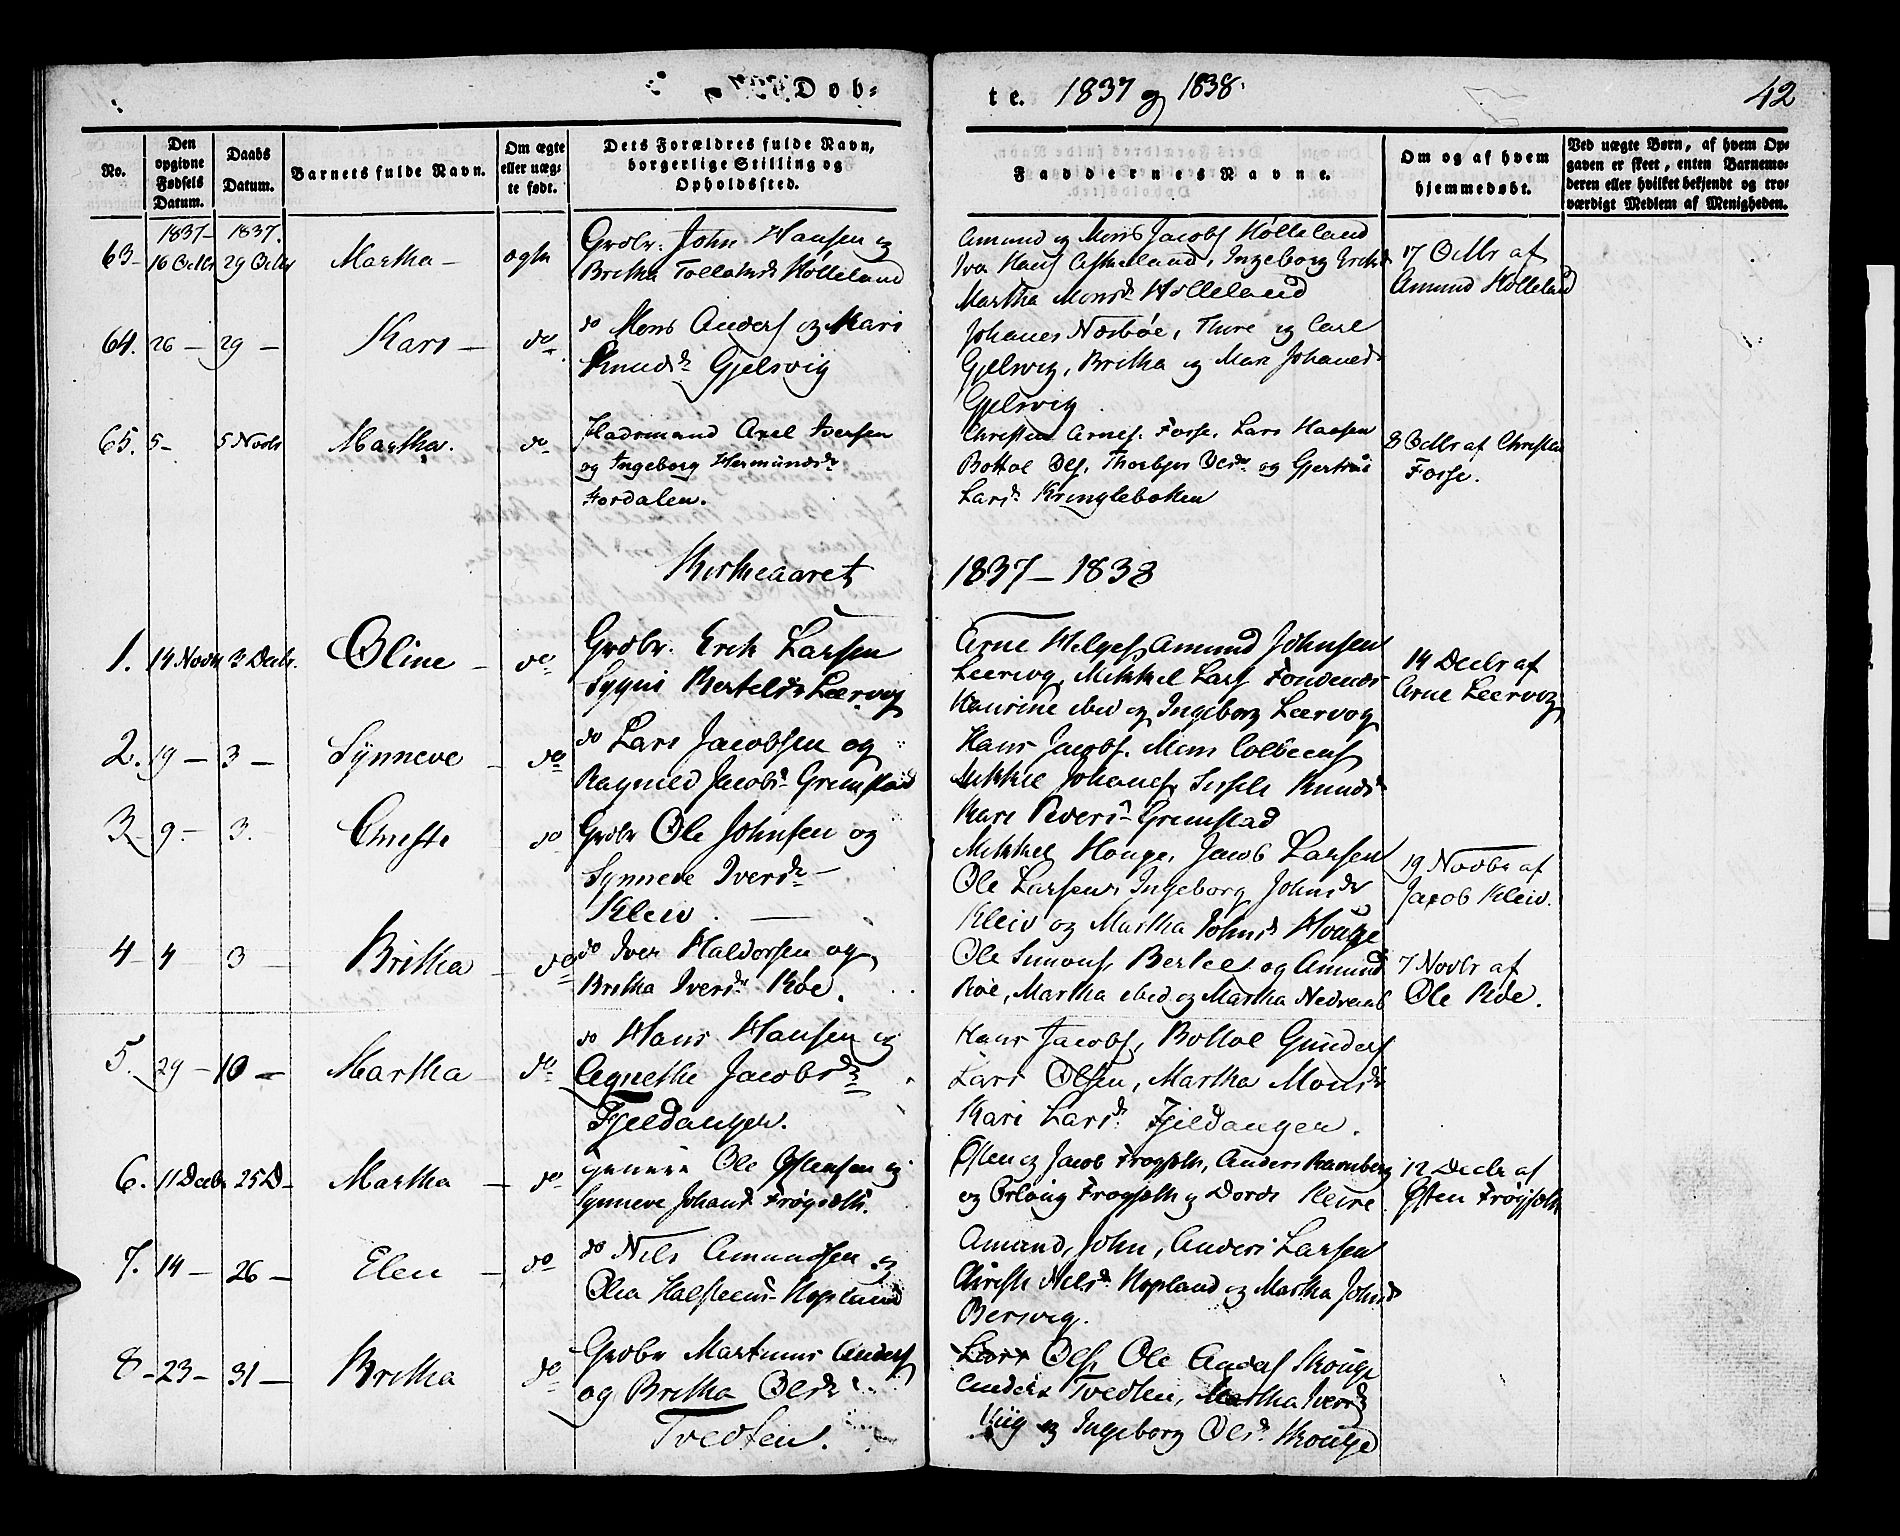 Døb-
te. 1837 og 1838.
42
No.
Den opgivne Fødsels Datum.
Daabs Datum.
Barnets fulde Navn.
Om ægte eller uægte født.
Dets Forældres fulde Navn, borgerlige Stilling og Opholdssted.
Faddernes Navne.
Om og af hvem hjemmedøbt.
Ved uægte Børn, af hvem Opgaven er skeet, enten Barnemoderen eller hvilket bekjendt og troværdigt Medlem af Menigheden.
1837- 1837.
63- 16 Octbr 29 Octbr Martha- ægte Grdbr. John Hansen og
Britha Tollaksdr Hölleland
Amund og Mons Jacobs Hölleland
Hans Ingeborg
Martha Monsdr Hölleland
17 Octbr af
Amund Hölleland
64. 26 - 29 - Kari - do do Mons Anders og Kari
Knudsdr Gjelsvig
Johanes Næsböe, Thore og Carl
Gjelsvig, Britha og Mari Johanesdr
Gjelsvig
65. 5- 5 Novbr Martha. do Axel Iversen
og Ingeborg Hermundsdr
Fordalen.
Christen Arnes. Fosse. Lars Hansen
Bottol Ols. Thorbjør Olsdr og Gjertrud
Larsdr Kringleboten
8 Octbr af Christen
Fosse.
Kirkeaaret
1837 - 1838
1. 14 Novbr 3 Decbr. Oline - do Grdbr. Erik Larsen
Sygni Berteldsdr Leervog
Arne Helges. Amund Johnsen
Leervog, Mikkel Lars
ibid og Ingeborg Leervog
14 Decbr af
Arne Leervog
2. 19 - 3 - Synneve - do do Lars Jacobsen og
Ragnild Jacobsdr Grimstad
Hans Jacobs. Mons
Mikkel Johanes. Sissele Knudsdr
Kari Grimstad
3. 9 - 3. Christi - do Grdbr Ole Johnsen og
Synneve Iversdr -
Kleiv. -
Mikkel Houge, Jacob Larsen
Ole Larsen, Ingeborg Johnsdr
Kleiv og Martha Johnsdr Houge
19 Novbr af
Jacob Kleiv.
4 - 4 3 - Britha - do do Iver Haldorsen og
Britha Iversdr Röe.
Ole Simons. og Amund
Röe, Martha ibid og Martha
7 Novbr af
Ole Röe.
5. 29 - 10 - Martha - do do Hans Hansen og
Agnethe Jacobsdr
Fjeldanger.
Hans Jacobs, Bottol Gunders
Lars Olsen, Martha Monsdr
Kari Larsdr Fjeldanger.
6. 11 Decbr 25 D - Martha - do Ole Østensen og
Synneve Johansdr
Østen og Jacob Anders
og og Dorde
12 Decbr af
Østen
7. 14 - 26 - Elen - do do Nils Amundsen og
Olea Hopland
Amund, John, Anders Larsen
Christi Nilsdr Hopland og Martha Johnsdr
Bersvig.
8 - 23 - 31 - Britha do Grdbr Martinus Anders
og Britha Olsdr
Tvedten.
Lars Ols. Ole Anders Skouge
Anders Tvedten, Martha Iversdr
og Ingeborg Olsdr Skouge